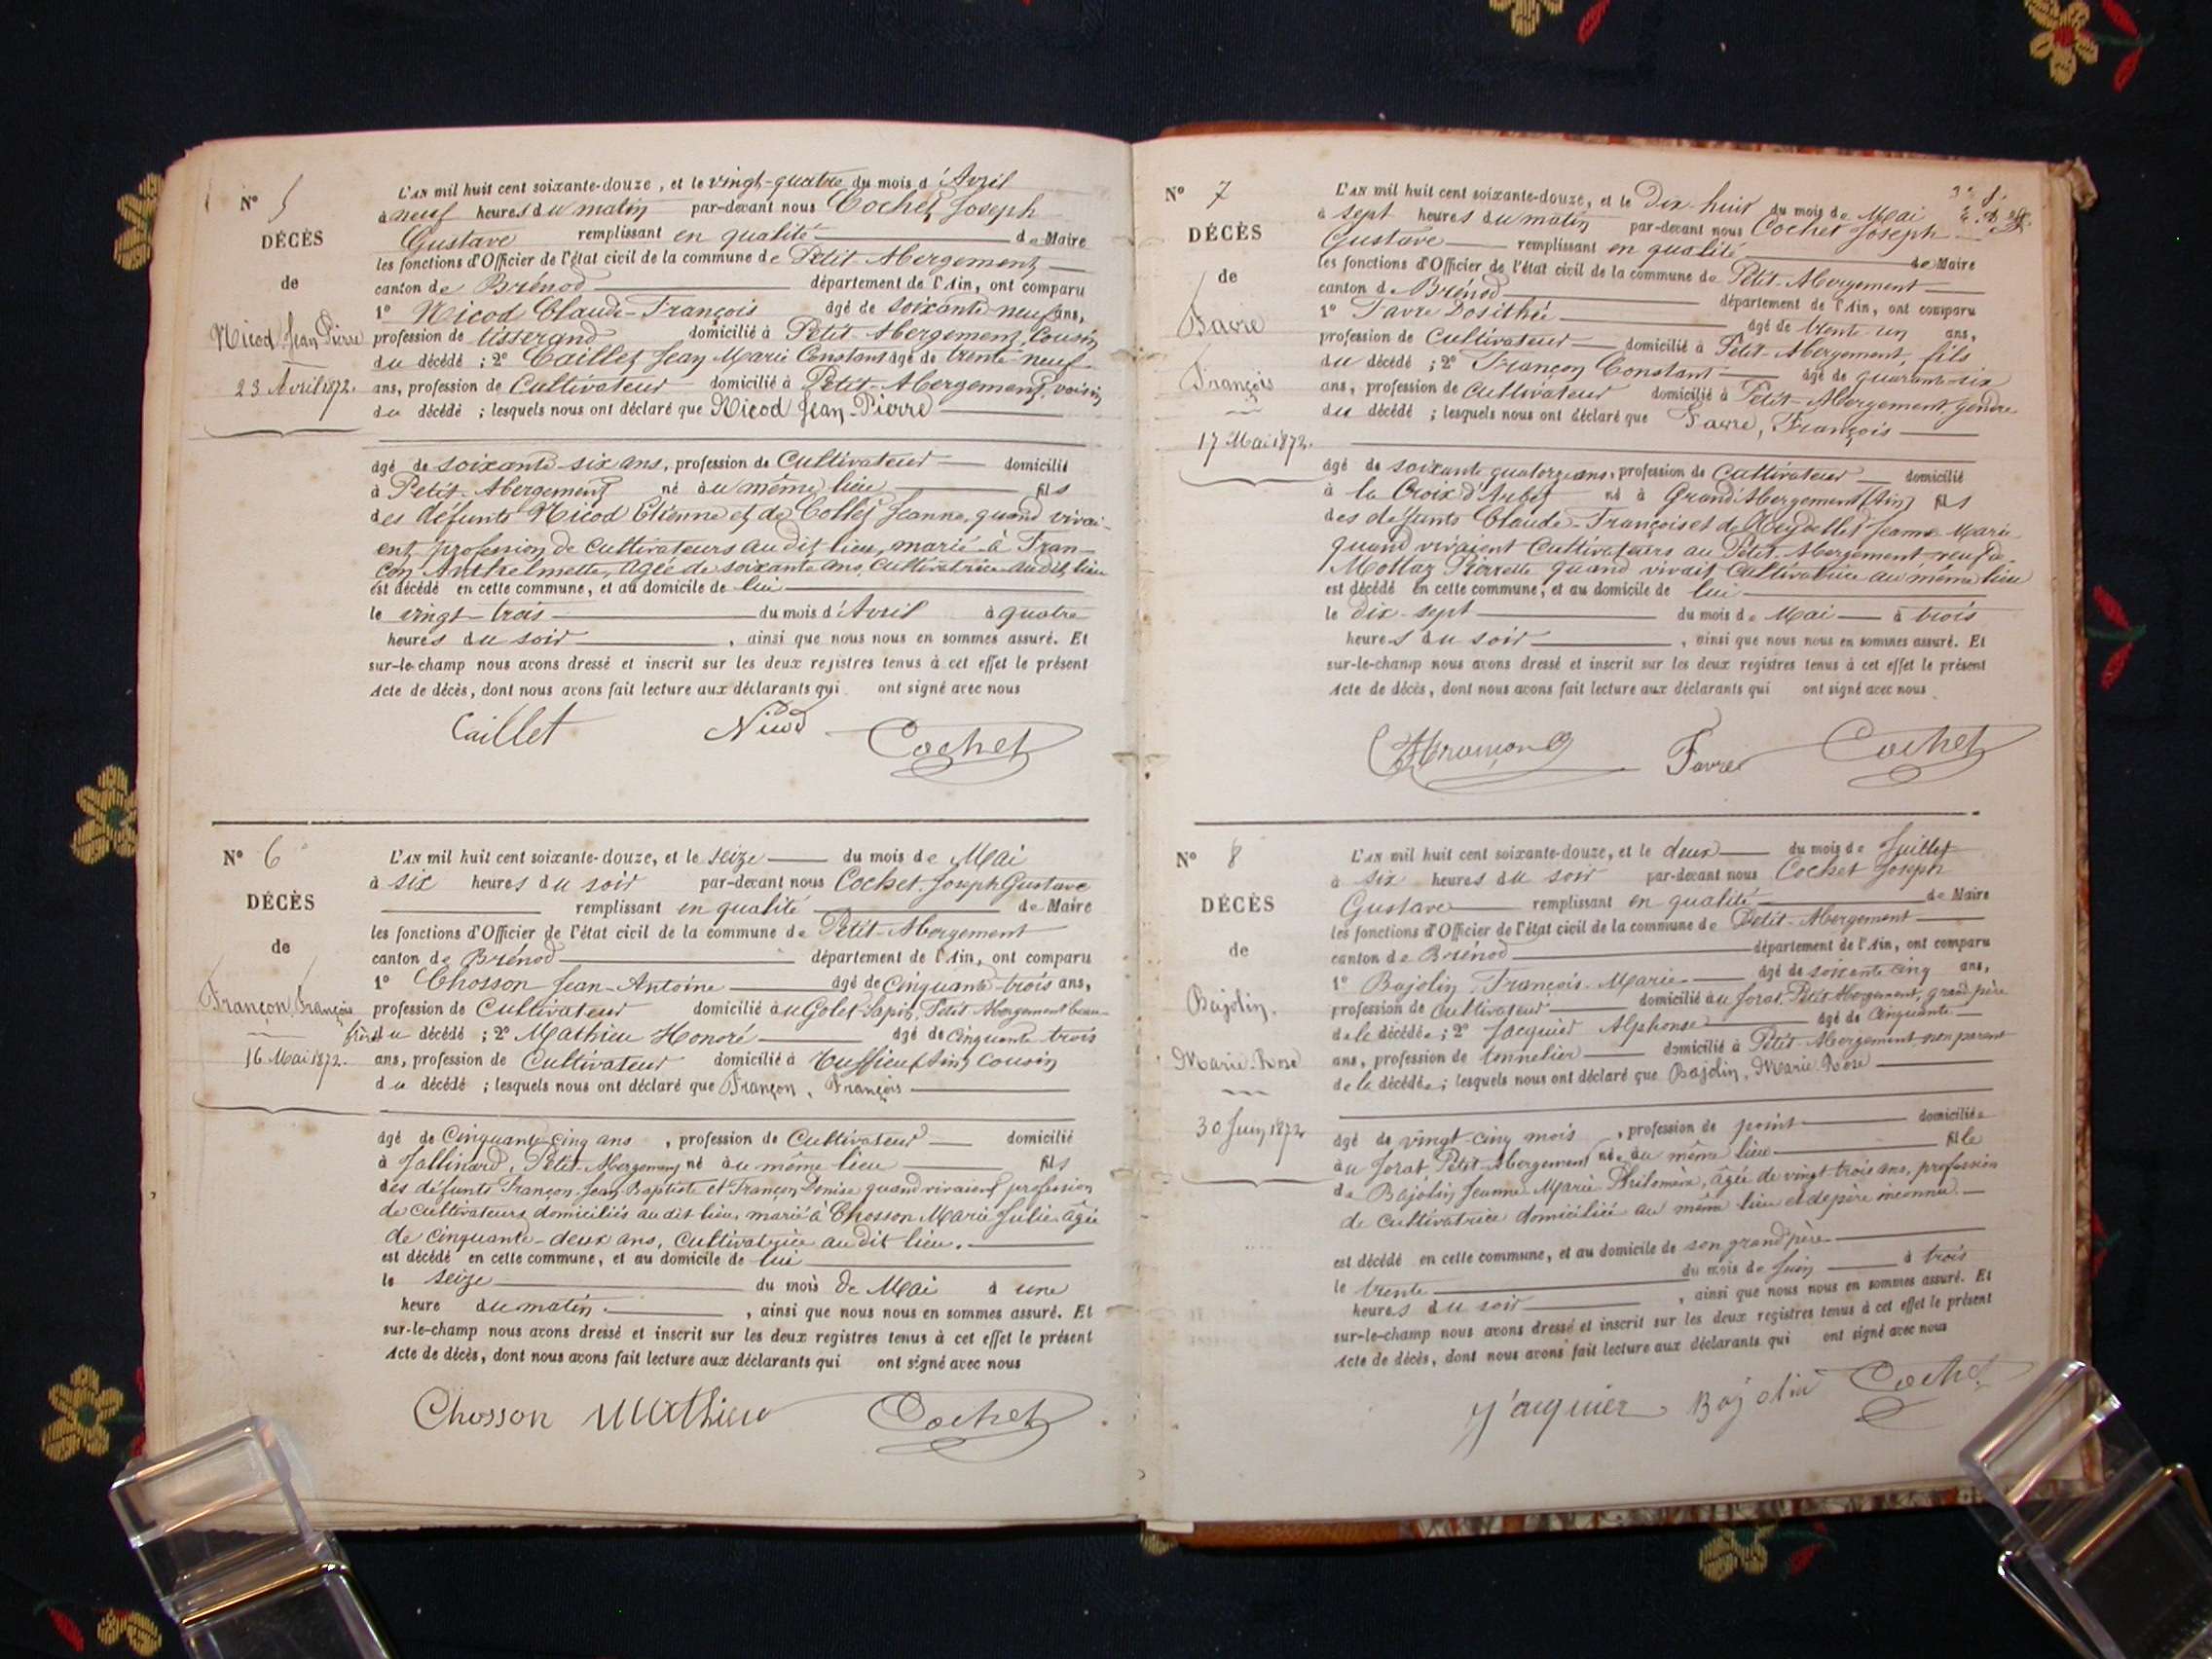 N° 5
DÉCÈS
de
Nicod Jean Pierre
23 Avril 1872.
L'AN mil huit cent soixante-douze, et le vingt-quatre du mois d'Avril
à neuf heures du matin par-devant nous Cochet Joseph
Gustave remplissant en qualité de Maire
les fonctions d'Officier de l'état civil de la commune de Petit-Abergement
canton de Brénod département de l'Ain, ont comparu
1° Nicod Claude-François âgé de soixante neuf ans,
profession de tisserand domicilié à Petit-Abergement, Cousin
du décédé ; 2° Caillet Jean Marie Constans âgé de trente-neuf
ans, profession de Cultivateur domicilié à Petit-Abergement, voisin
du décédé ; lesquels nous ont déclaré que Nicod Jean-Pierre
âgé de soixante-six ans, profession de Cultivateur domicilié
à Petit-Abergement né au même lieu fils
des défunts Nicod Etienne et de Collet Jeanne, quand vivai-
ent profession de cultivateurs audit lieu, marié à Fran-
çon Anthelmette, âgée de soixante ans, Cultivatrice audit lieu
est décédé en cette commune, et au domicile de lui
le vingt-trois du mois d'Avril à quatre
heures du soir , ainsi que nous nous en sommes assuré. Et
sur-le-champ nous avons dressé et inscrit sur les deux registres tenus à cet effet le présent
Acte de décès, dont nous avons fait lecture aux déclarants qui ont signé avec nous
Caillet Nicod Cochet
N° 6
DÉCÈS
de
Françon François
16 Mai 1872.
L'AN mil huit cent soixante-douze, et le seize du mois de Mai
à six heures du soir par-devant nous Cochet Joseph Gustave
remplissant en qualité de Maire
les fonctions d'Officier de l'état civil de la commune de Petit-Abergement
canton de Brénod département de l'Ain, ont comparu
1° Chosson Jean-Antoine âgé de Cinquante-trois ans,
profession de Cultivateur domicilié au Golet Sapin, Petit Abergement beau-
frère du décédé ; 2° Mathieu Honoré âgé de Cinquante trois
ans, profession de Cultivateur domicilié à Ruffieu (Ain) Cousin
du décédé ; lesquels nous ont déclaré que Françon, François
âgé de Cinquante-Cinq ans , profession de Cultivateur domicilié
à Jallinard, Petit-Abergement né au même lieu fils
des défunts Françon, Jean Baptiste et Françon Denise quand vivaient profession
de cultivateurs domiciliés audit lieu, marié à Chosson Marie Julie âgée
de cinquante-deux ans, Cultivatrice audit lieu.
est décédé en cette commune, et au domicile de lui
le seize du mois de Mai à une
heure du matin. , ainsi que nous nous en sommes assuré. Et
sur-le-champ nous avons dressé et inscrit sur les deux registres tenus à cet effet le présent
Acte de décès, dont nous avons fait lecture aux déclarants qui ont signé avec nous
Chosson Mathieu Cochet
N° 7
DÉCÈS
de
Favre
François
17 Mai 1872.
L'AN mil huit cent soixante-douze, et le Dix-huit du mois de Mai
à sept heures du matin par-devant nous Cochet Joseph
Gustave remplissant en qualité de Maire
les fonctions d'Officier de l'état civil de la commune de Petit-Abergement
canton de Brénod département de l'Ain, ont comparu
1° Favre Dosithé âgé de trente-un ans,
profession de Cultivateur domicilié à Petit-Abergement, fils
du décédé ; 2° Françon Constant âgé de quarante-six
ans, profession de Cultivateur domicilié à Petit-Abergement, gendre
du décédé ; lesquels nous ont déclaré que Favre, François
âgé de soixante quatorze ans, profession de Cultivateur domicilié
à la Croix d'Arbet né à Grand-Abergement (Ain) fils
des défunts Claude-François et de Jeanne-Marie
quand vivaient Cultivateurs au Petit-Abergement veuf de
Mollaz Pierrette quand vivait Cultivatrice au même lieu
est décédé en cette commune, et au domicile de lui
le dix-sept du mois de Mai à trois
heures du soir , ainsi que nous nous en sommes assuré. Et
sur-le-champ nous avons dressé et inscrit sur les deux registres tenus à cet effet le présent
Acte de décès, dont nous avons fait lecture aux déclarants qui ont signé avec nous
Françon Favre Cochet
N° 8
DÉCÈS
de
Bajolin.
Marie-Rose
30 Juin 1872
L'AN mil huit cent soixante-douze, et le deux du mois de Juillet
à six heures du soir par-devant nous Cochet Joseph
Gustave remplissant en qualité de Maire
les fonctions d'Officier de l'état civil de la commune de Petit-Abergement
canton de Brénod département de l'Ain, ont comparu
1° Bajolin, François-Marie âgé de soixante cinq ans,
profession de Cultivateur domicilié au Jorat, Petit-Abergement, grand père
de la décédée ; 2° Jacquier Alphonse âgé de Cinquante
ans, profession de tonnelier domicilié à Petit-Abergement, non parent
de la décédée ; lesquels nous ont déclaré que Bajolin, Marie Rose
âgé de vingt-cinq mois , profession de point domiciliée
au Jorat Petit-Abergement née au même lieu fille
de Bajolin Jeanne-Marie Philomène, âgée de vingt-trois ans, profession
de cultivatrice domiciliée au même lieu et de père inconnu.
est décédé en cette commune, et au domicile de son grand père
le trente du mois de Juin à trois
heures du soir , ainsi que nous nous en sommes assuré. Et
sur-le-champ nous avons dressé et inscrit sur les deux registres tenus à cet effet le présent
Acte de décès, dont nous avons fait lecture aux déclarants qui ont signé avec nous
Jacquier Bajolin Cochet